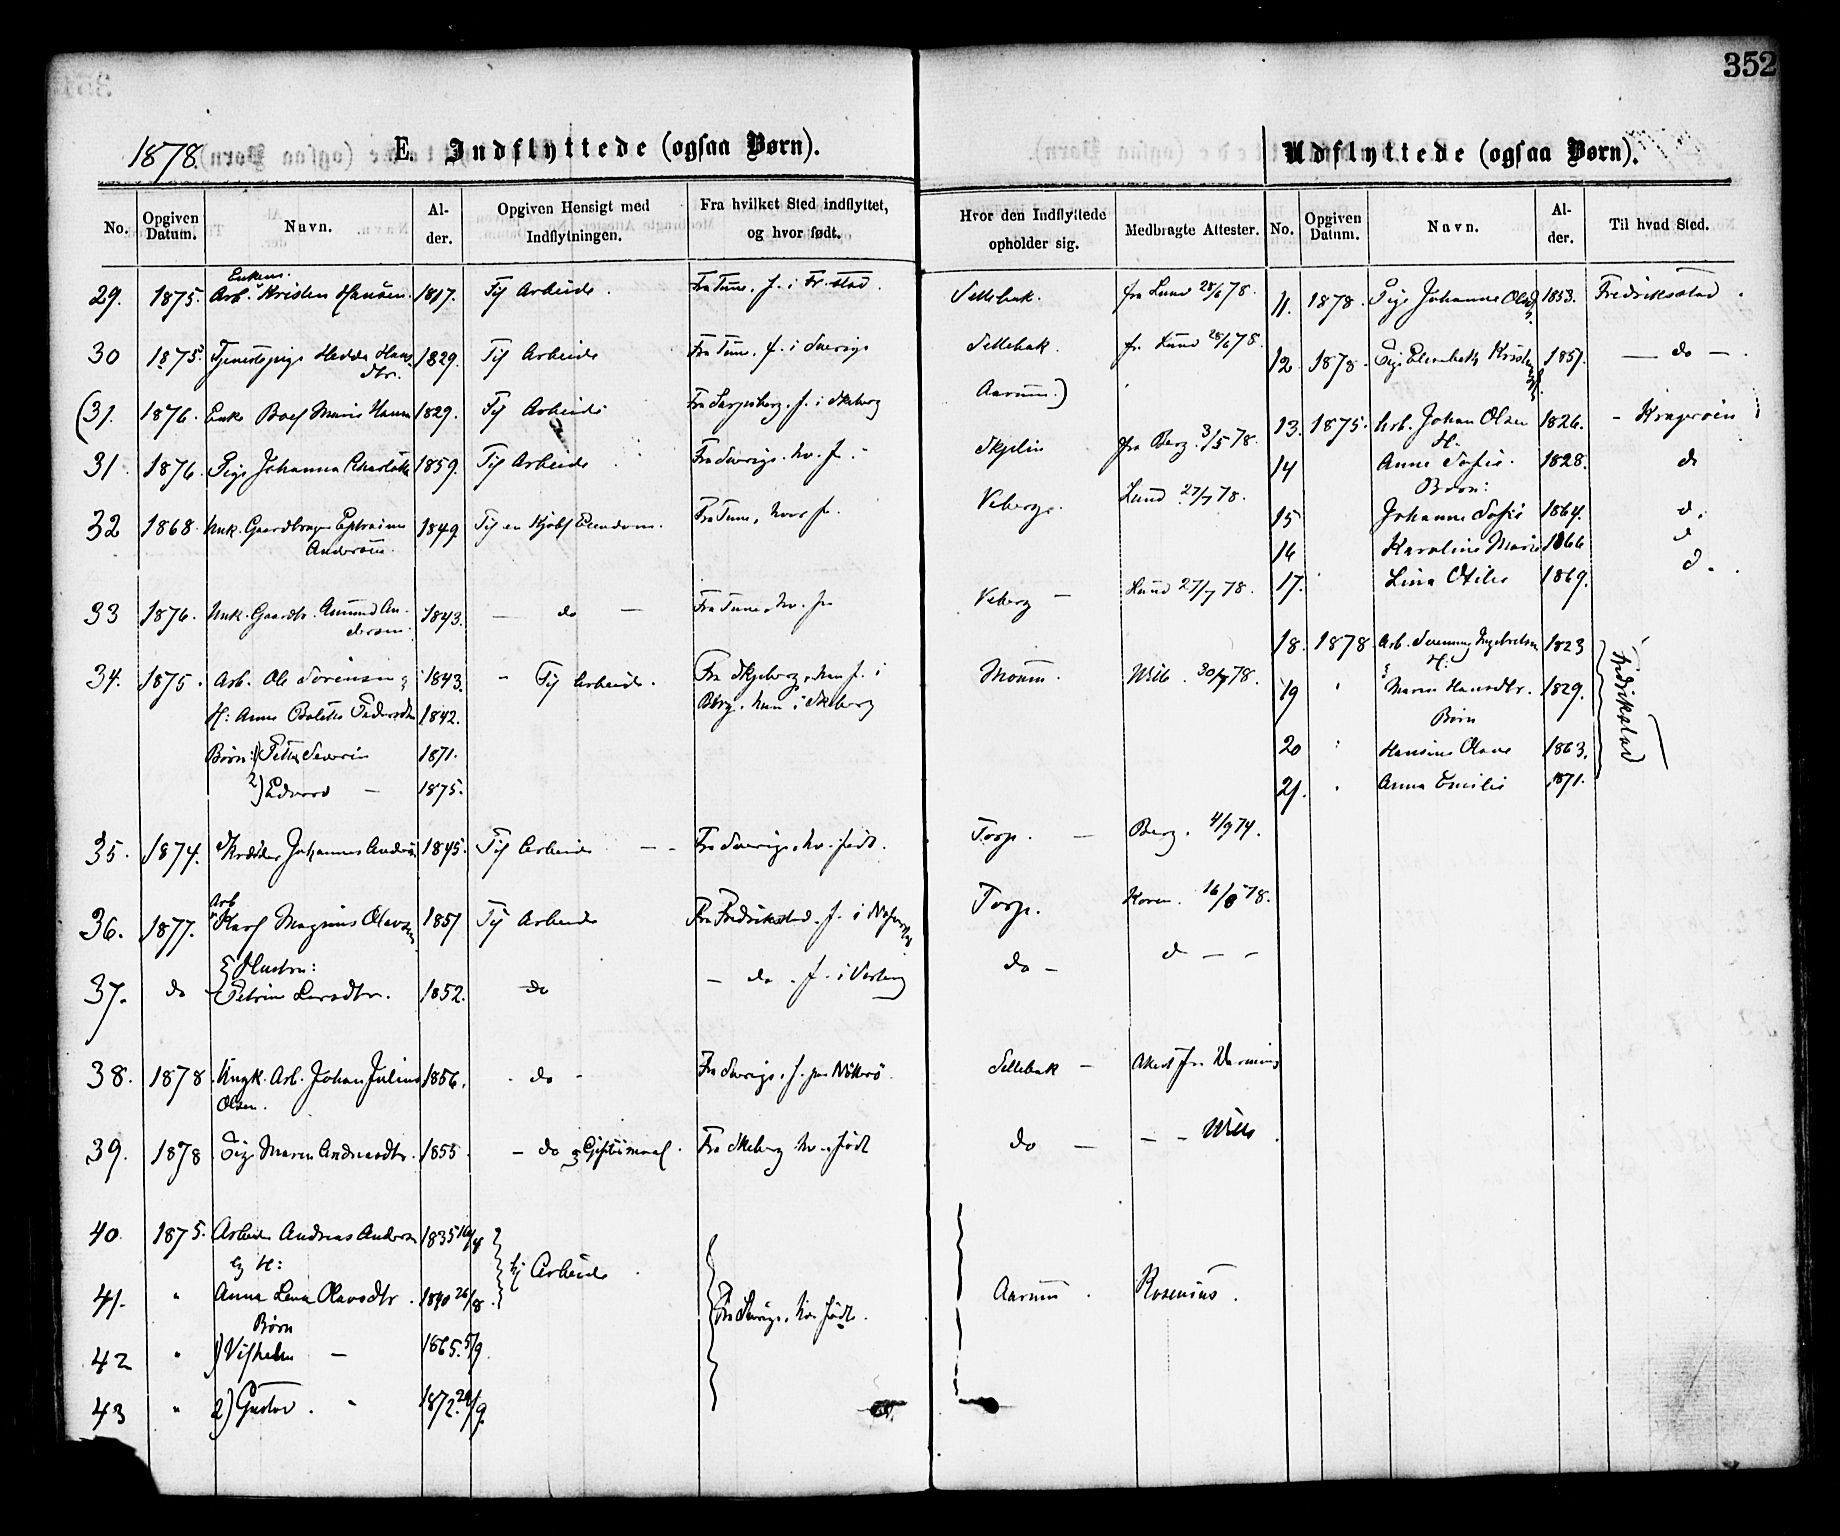 352
1878.
E. Indflyttede (ogsaa Børn).
Udflyttede (ogsaa Børn).
No. Opgiven Datum. Navn. Alder. Opgiven Hensigt med Indflytningen. Fra hvilket Sted indflyttet, og hvor født. Hvor den Indflyttede opholder sig. Medbragte Attester.
29. 1875. Arb. Enkem. Kristen Hansen. 1817. Til Arbeide. Fra Tune. f. i Fr.stad. Sellebak. fra Lund 28/6 78.
30 1875. Tjenestepige Hedda Hans
dtr. 1829. Til Arbeide Fra Tune. f. i Sverige Sellebak. fr. Lund 28/6 78.
(31. 1876. Enke Marie 1829. Til Arbeide Fra Sarpsborg. f. i Skeberg Aarum.)
31. 1876. Pige Johanna 1859. Til Arbeide Fra Sverige. hv. f. Skjelin fra Berg. 3/5 78.
32 1868. Unk. Gaardbruger Efraim
Andersen. 1849. Til en Kjøbt Eiendom. Fra Tune, hvor f. Veberg. Lund 27/7 78.
33 1876. Unk. Gaardbr. Amund An-
dersen. 1843. — do — Fra Tune. hv. f. Veberg — Lund 27/7 78.
34. 1875. Arb. Ole Sørensen & 1843. Til Arbeide. Fra Skjeberg, han f. i Moum. Wille. 30/7 78.
H: Anne Bolette Pedersdtr 1842. Berg. hun i Skeberg
Børn: 1) Petter Severin 1871.
2) Edvard — 1875.
35. 1874. Skrædder Johannes Anders 1845. Til Arbeide — Fra Sverige, hv. født. Torp. — Berg. 4/9 74.
36. 1877. Arb Karl Magnus Olavsen 1851 Til Arbeide Fra Fredrikstad. f. i Torp. Koren. 16/8 78.
& Hustru:
37. do Petrine Larsdtr. 1852. do — do. f. i Varberg do — d — —
38. 1878. Ungk. Arb. Johan Julius 1856. do Fra Sverige. f. paa Sellebak —
Olsen.
39. 1878 Pige Maren Andreasdtr. 1855. — do & Giftermaal. Fra Skeberg hv. født do — — — Wille
40. 1875. Arbeider Andreas Anders 1835 til Arbeide Fra Sverige, hv. født. Aarum. Rosenius.
og H:
41. " Anna Lena Olavsdtr. 1840 26/8.
Børn
42 " 1) Vilhelm — 1865. 5/9
43 " 2) Gustav. " 1872. /9.
No. Opgiven Datum. Navn. Alder. Til hvad Sted.
11. 1878. Pige Johanne Olsd 1853. Fredriksstad.
12. 1878. Pige Elisabeth 1851. — do —.
13. 1875. Arb. Johan Olsen 1826. - Kragerøen
H.
14 Anne Sofie. 1828. do
Børn:
15 Johanne Sofie 1864. d.
16 Karoline Marie 1866 d
17. Lina Otilie 1869. d.
18. 1878. Arb. Ingebretsen 1823 Fredrikstad
& H:
19 " Maren Hansdtr. 1829.
Børn
20 " Hansine Olava 1863.
21. " Anna Emilie 1871.